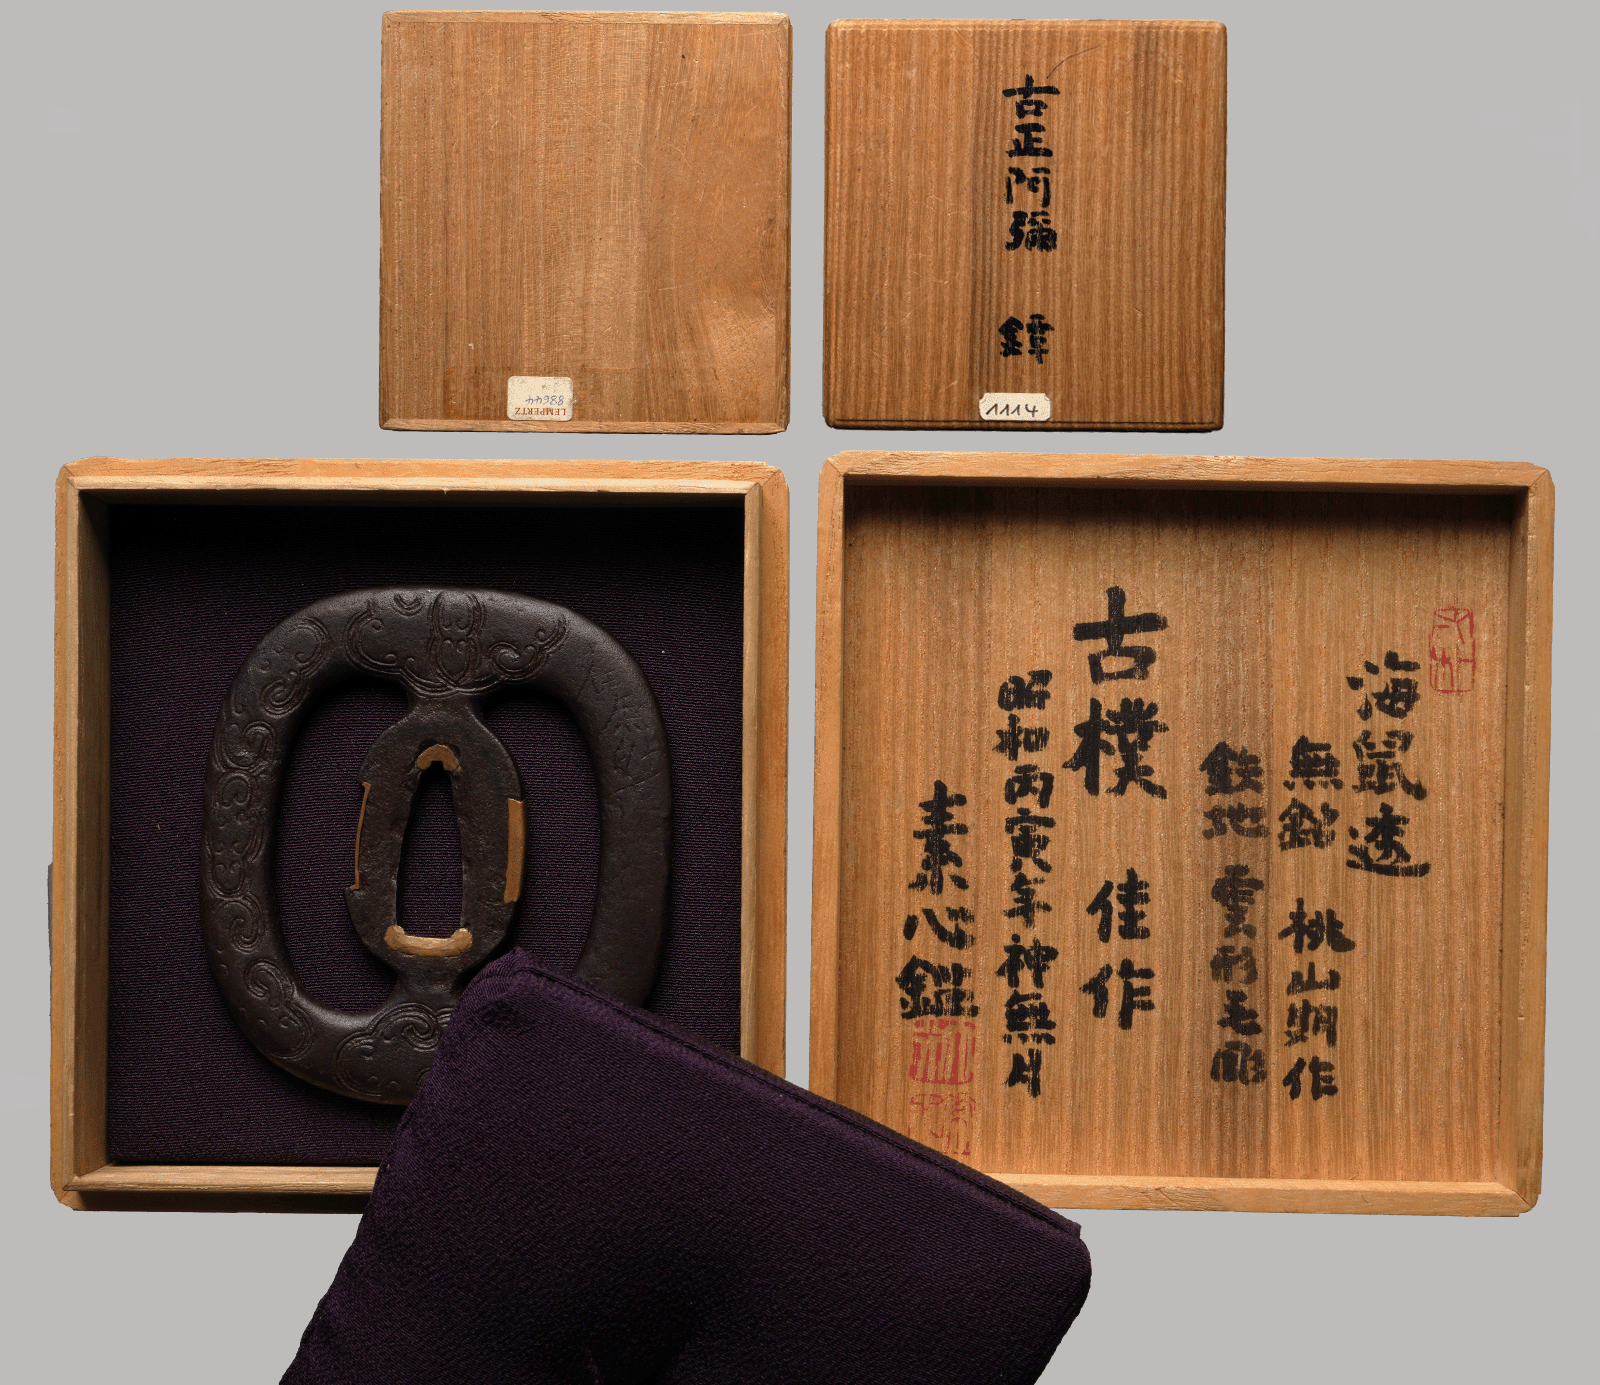 LEMPERTZ
88644
古正阿彌 鐔
1114
海鼠透
無銘 桃山期作
鉄地 雲形毛彫
古樸 佳作
昭和丙寅年神無月
素心鑑